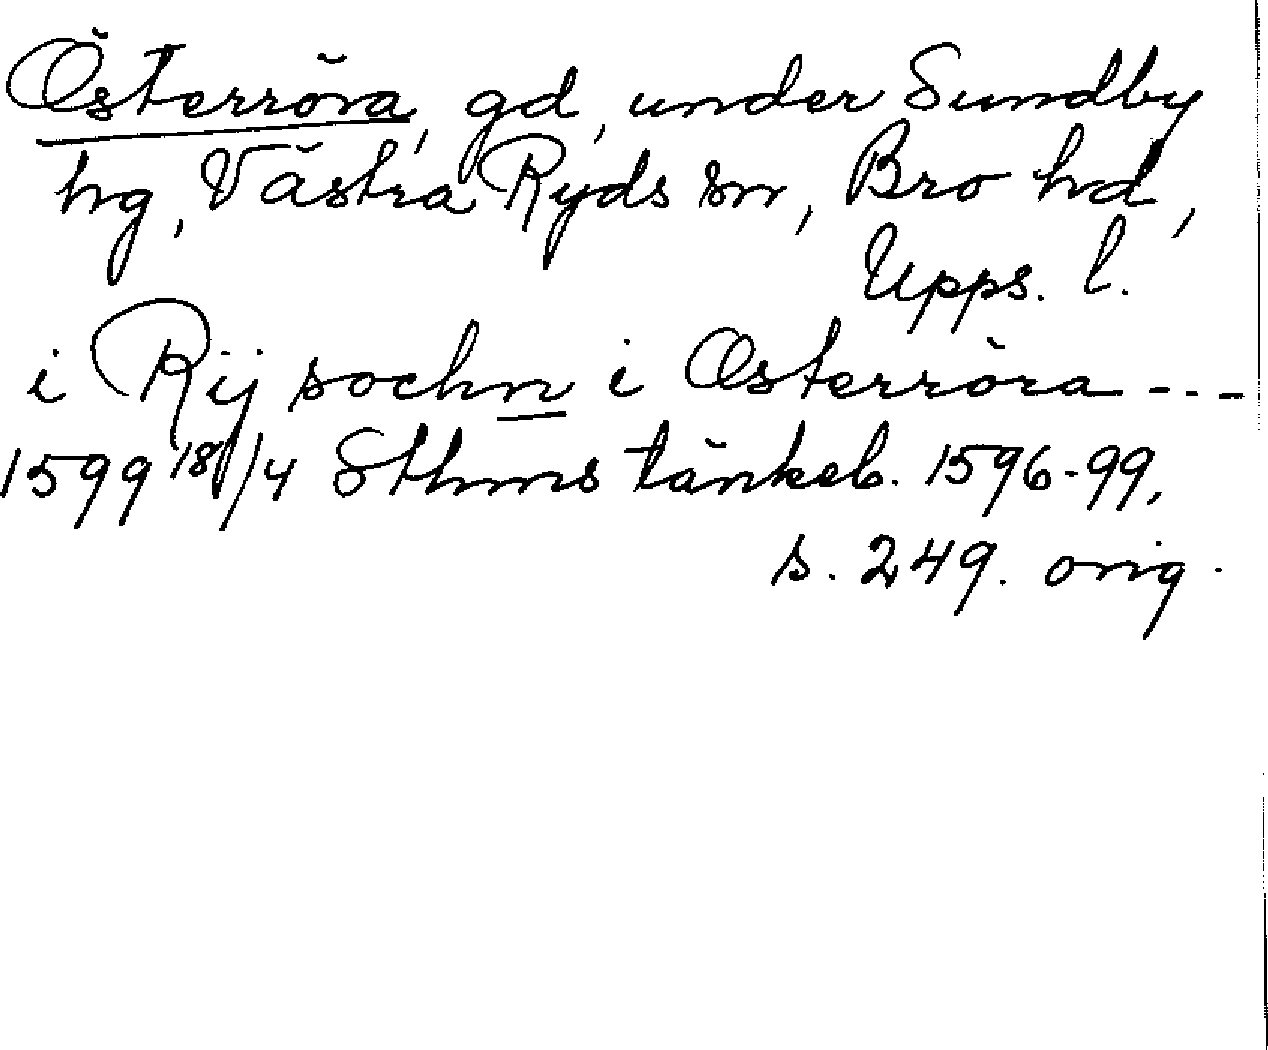 Österröra, gd, under Sundby
hg, Västra Ryds sn, Bro hd,
Upps. l.
i Rij sochn i Österröra ---
1599 18/4 Sthms tänkeb. 1596-99,
s. 249. orig.